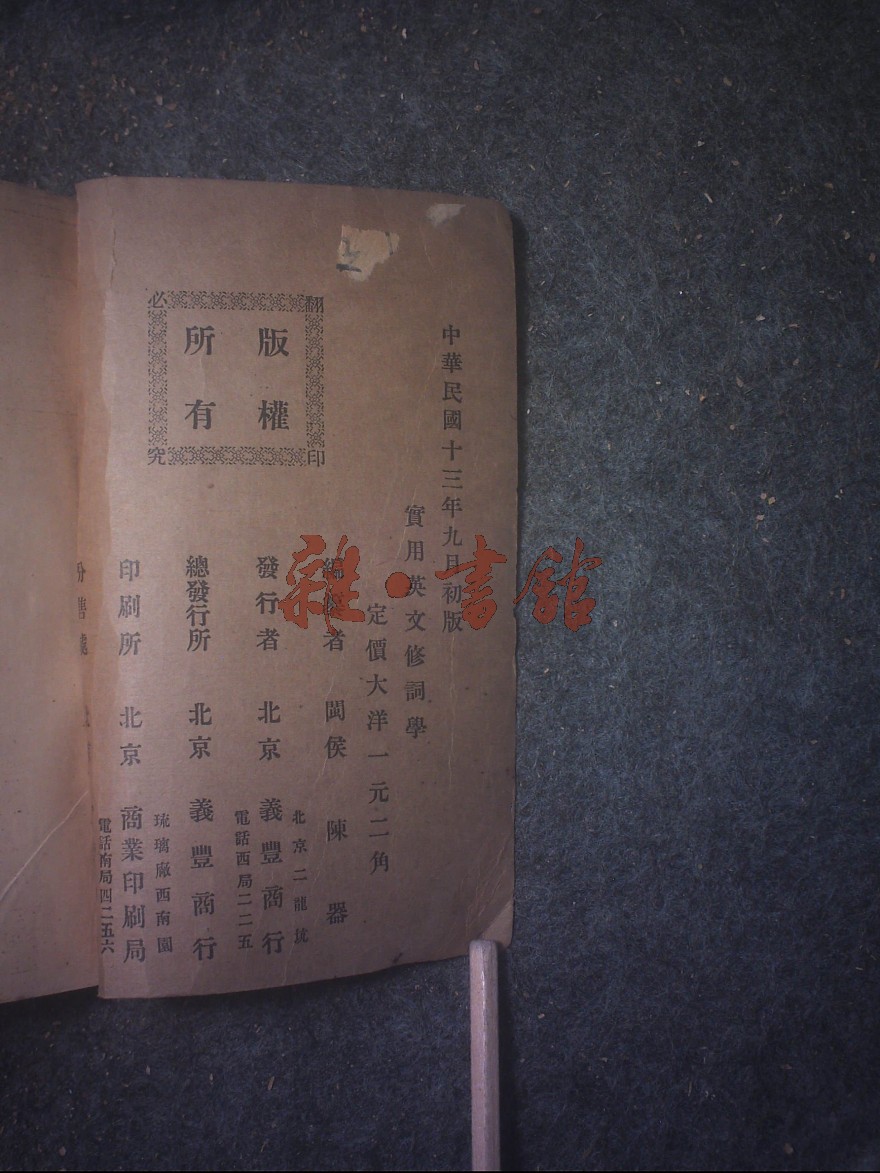 中華民國十三年九月初版
實用英文修詞學
定價大洋一元二角
編纂者 閩侯 陳器
北京二龍坑
發行者 北京 義豐商行
電話西局二二五
總發行所 北京 義豐商行
琉璃廠西南園
印刷所 北京 商業印刷局
電話南局四二五六
分售處
版權
所有
翻印
必究
雜·書館